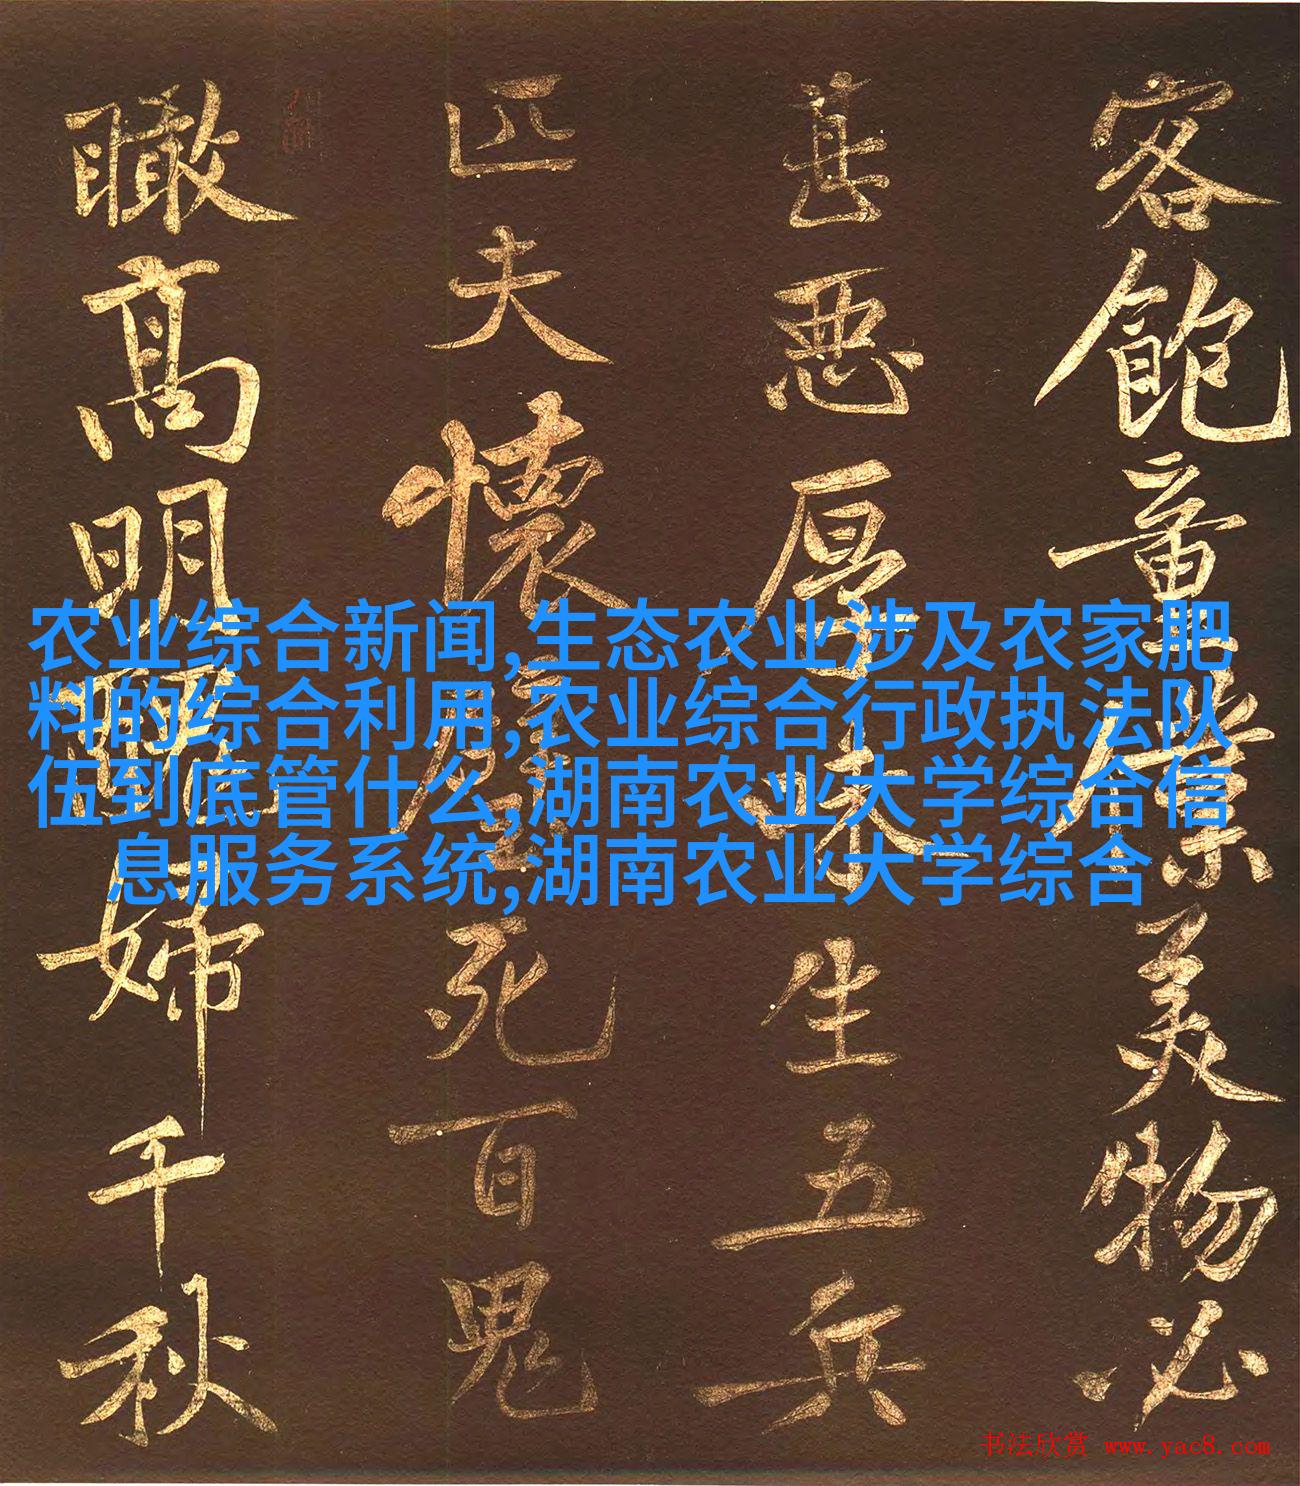 客飽童僕美物必
甚惡厚味生五兵
匹夫懷璧死百鬼
瞰高明醜婦千秋
农业综合新闻,生态农业涉及农家肥
料的综合利用,农业综合行政执法队
伍到底管什么,湖南农业大学综合信
息服务系统,湖南农业大学综合
书法欣赏 www.yac8.com